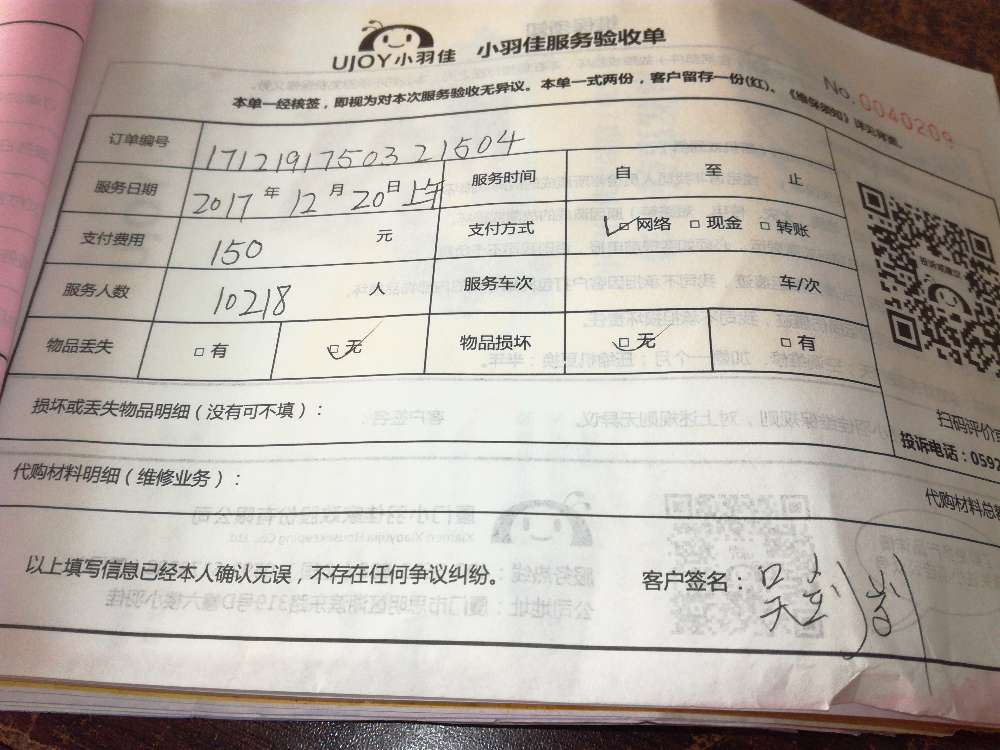 UJOY小羽佳 小羽佳服务验收单
No.0040209
本单一经核签，即视为对本次服务验收无异议。本单一式两份，客户留存一份(红)。《维保须知》详见背面。
订单编号 1712191750321504
服务日期 2017年12月20日上午 服务时间 自 至 止
支付费用 150 元 支付方式 □网络 □现金 □转账
服务人数 10218 人 服务车次 车/次
物品丢失 □有 □无 物品损坏 □无 □有
损坏或丢失物品明细（没有可不填）：
扫码评价
投诉电话：0592
代购材料明细（维修业务）：
代购材料总
以上填写信息已经本人确认无误，不存在任何争议纠纷。 客户签名：吴